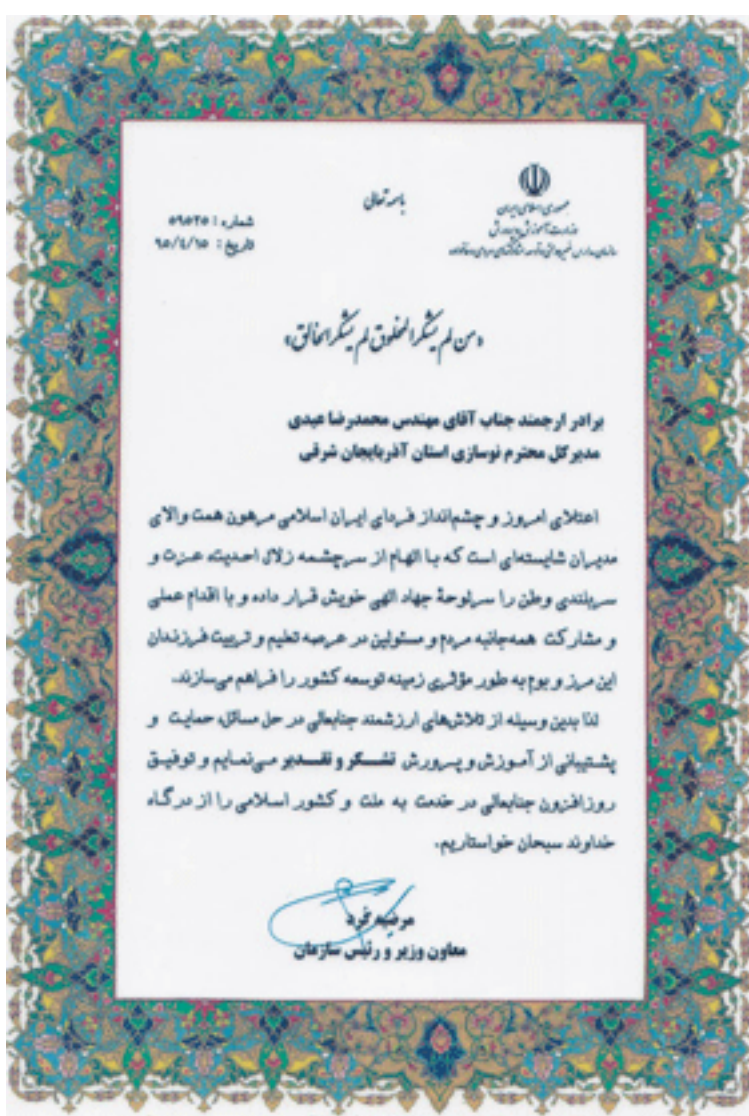 باسمه تعالی
جمهوری اسلامی ایران
وزارت آموزش و پرورش
سازمان مدارس غیردولتی و توسعه مشارکتهای مردمی و خانواده
شماره : ۵۹۵۲۵
تاریخ : ۹۵/۴/۱۵
«من لم یشکر المخلوق لم یشکر الخالق»
برادر ارجمند جناب آقای مهندس محمدرضا عبدی
مدیرکل محترم نوسازی استان آذربایجان شرقی
اعتلای امروز و چشم‌انداز فردای ایران اسلامی مرهون همت والای
مدیران شایسته‌ای است که با الهام از سرچشمه زلال احدیت، عزت و
سربلندی وطن را سرلوحهٔ جهاد الهی خویش قرار داده و با اقدام عملی
و مشارکت همه‌جانبه مردم و مسئولین در عرصه تعلیم و تربیت فرزندان
این مرز و بوم به طور مؤثری زمینه توسعه کشور را فراهم می‌سازند.
لذا بدین وسیله از تلاش‌های ارزشمند جنابعالی در حل مسائل، حمایت و
پشتیبانی از آموزش و پرورش تشکر و تقدیر می‌نمایم و توفیق
روزافزون جنابعالی در خدمت به ملت و کشور اسلامی را از درگاه
خداوند سبحان خواستاریم.
مرضیه گرد
معاون وزیر و رئیس سازمان